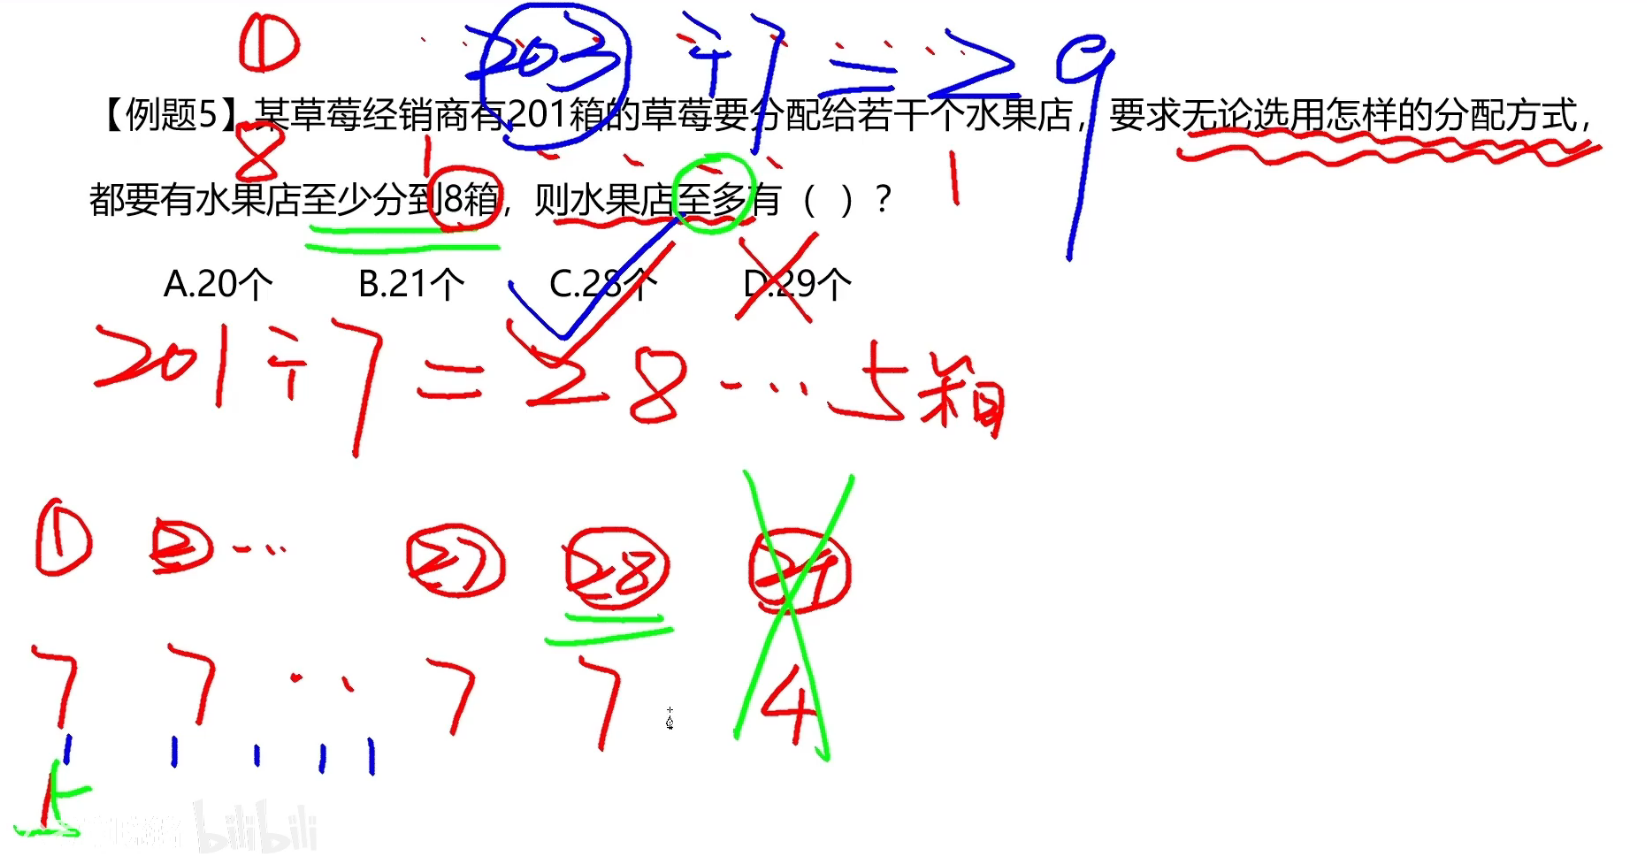 ① 203÷7=29
【例题5】某草莓经销商有201箱的草莓要分配给若干个水果店，要求无论选用怎样的分配方式，
8 1 1
都要有水果店至少分到8箱，则水果店至多有（ ）？
A.20个 B.21个 C.28个 D.29个
201÷7=28…5箱
① ② … ㉗ ㉘ ㉙
7 7 … 7 7 4
1 1 1 1 1
bilibili